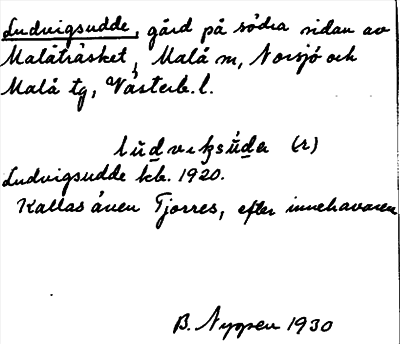 Ludvigsudde, gård på södra sidan av
Malåträsket, Malå m, Norsjö och
Malå tg, Västerb. l.
lùdvıksúdə (r)
Ludvigsudde kb. 1920.
Kallas även Tjorres, efter innehavaren
B. Nygren 1930